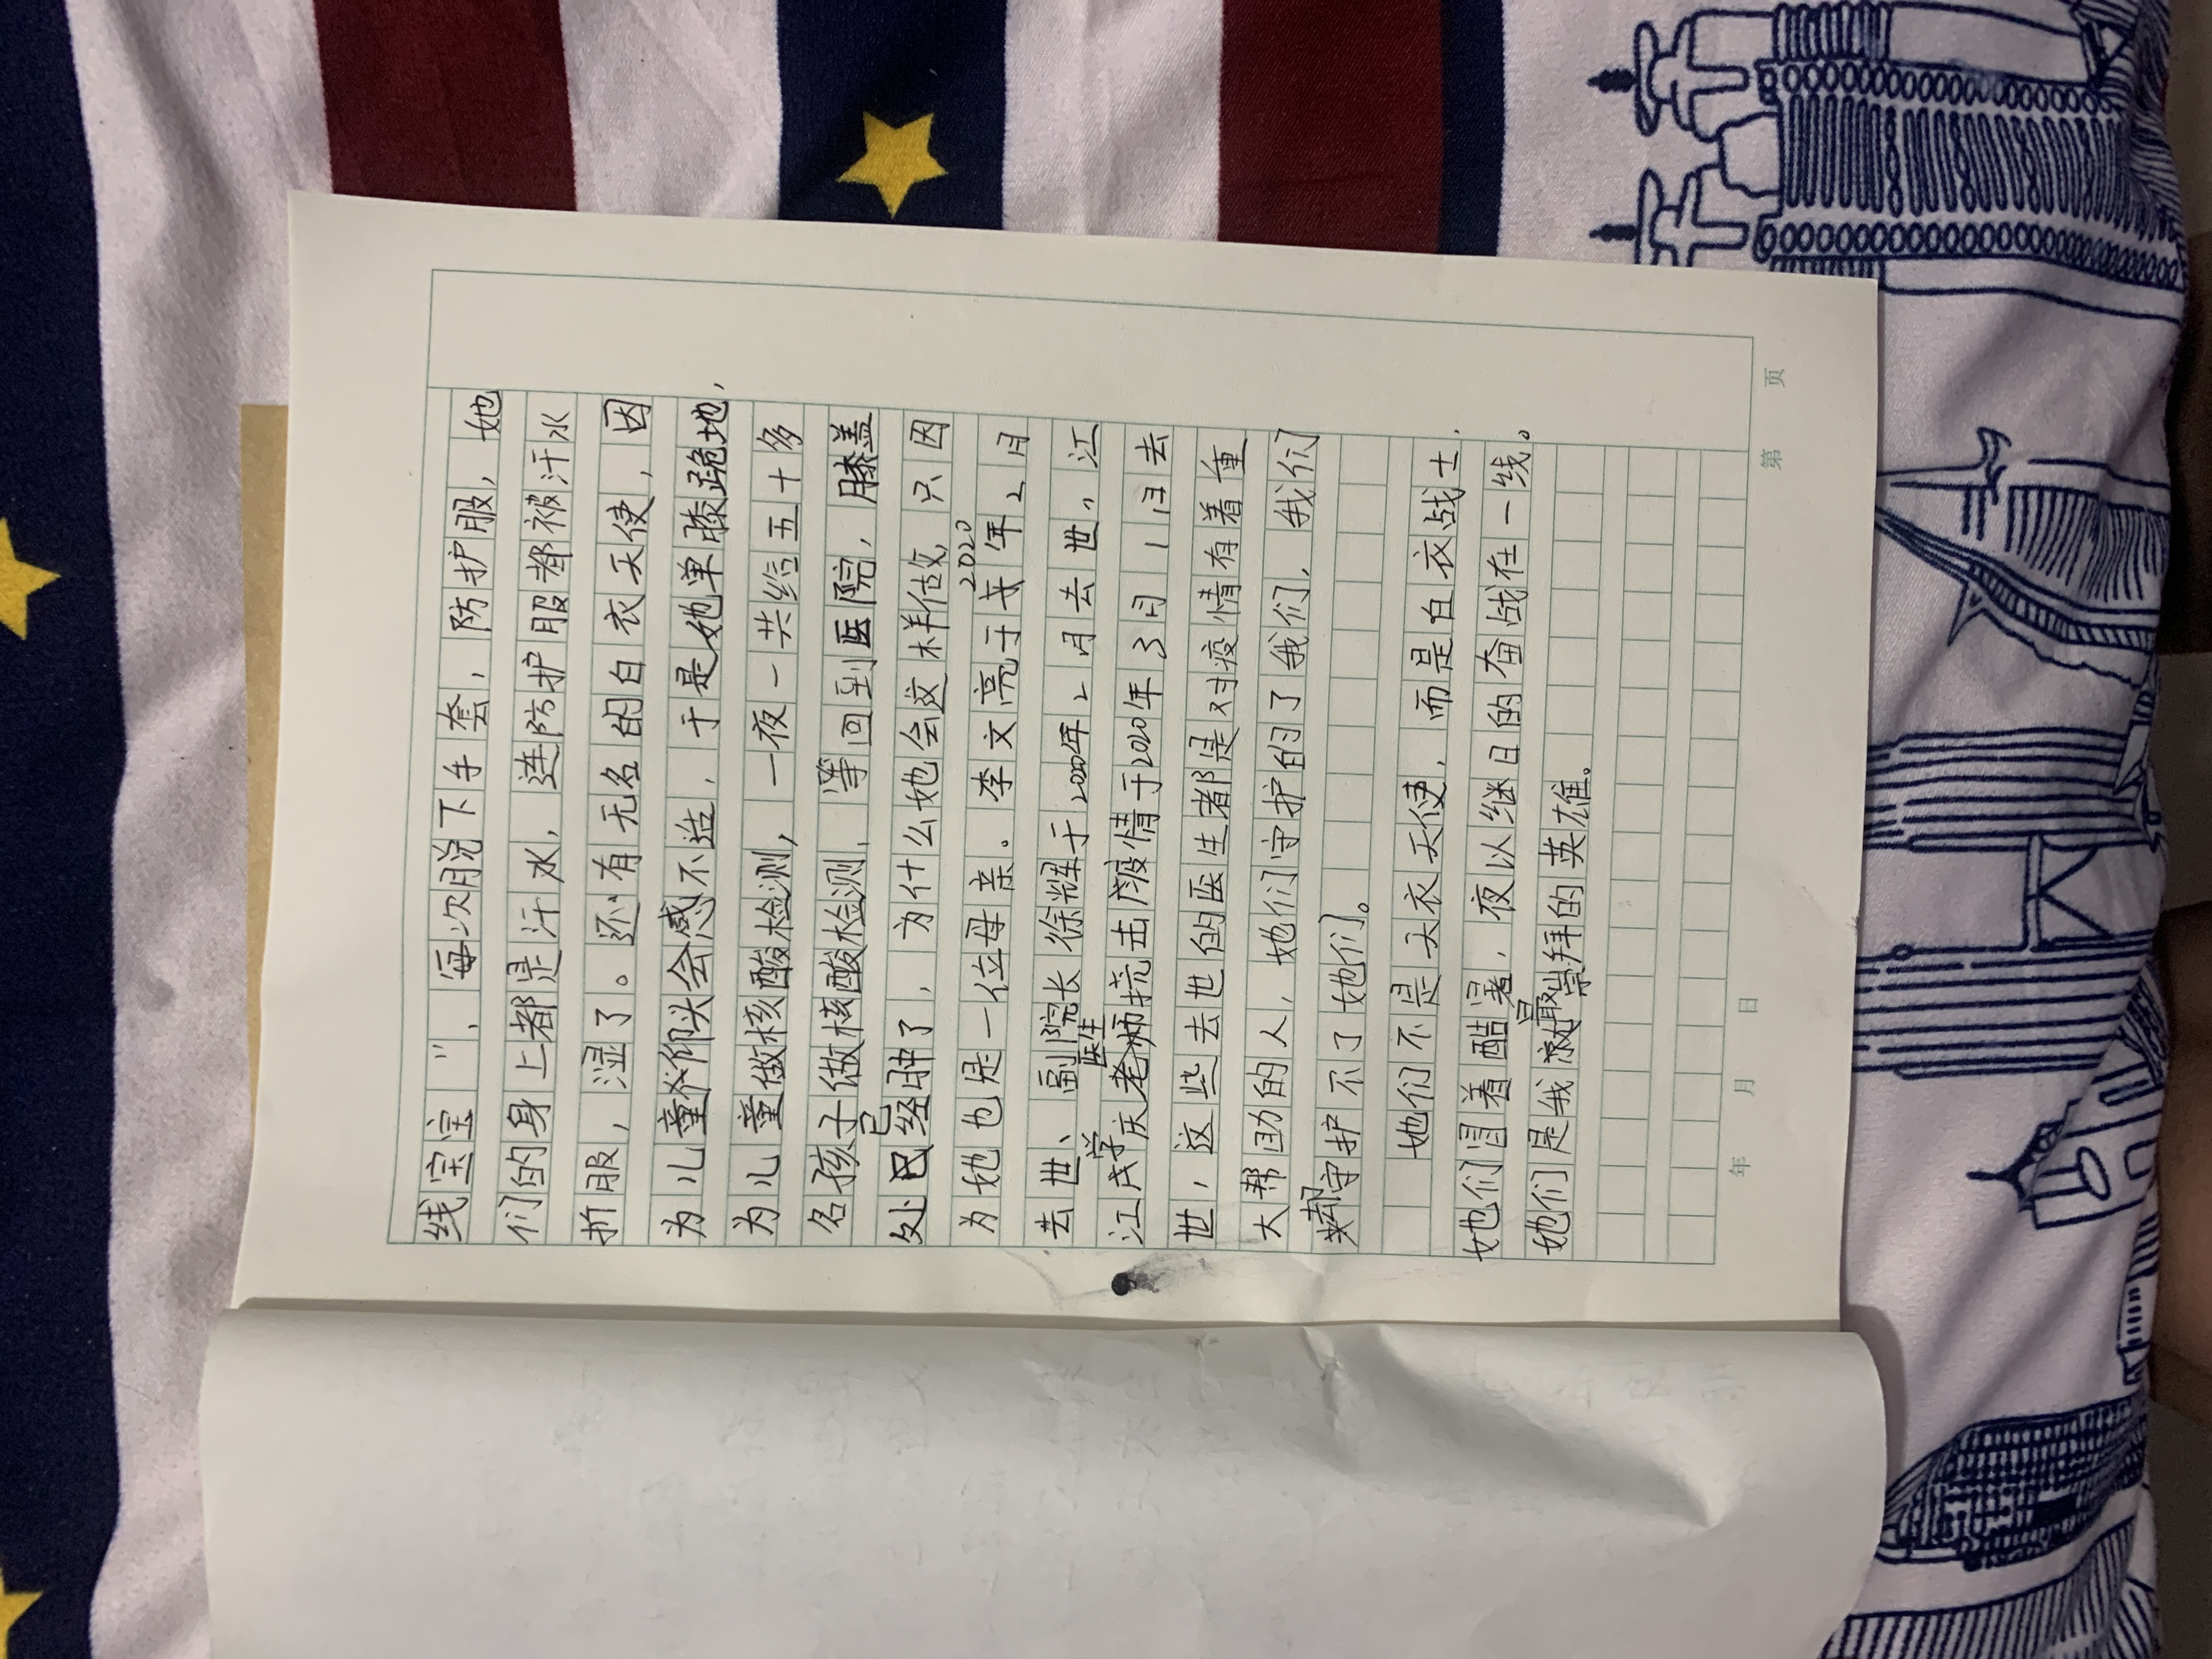 线宝宝"，每次脱下手套，防护服，她
们的身上都是汗水，连防护服都被汗水
折服，湿了。还有无名的白衣天使，因
为儿童仰头会感不适，于是她单膝跪地，
为儿童做核酸检测，一夜一共给五十多
名孩子做核酸检测，等回到医院，膝盖
处已经肿了，为什么她会这样做，只因
为她也是一位母亲。李文亮于2020年2月
去世、副院长徐辉于2020年2月去世，江
江学庆医生抗击疫情于2020年3月1日去
世，这些去世的医生都是对疫情有着重
大帮助的人，她们守护的了我们，我们
却守护不了她们。
她们不是天衣天使，而是白衣战士，
她们冒着酷暑，夜以继日的奋战在一线。
她们是我最崇拜的英雄。
年 月 日
第 页